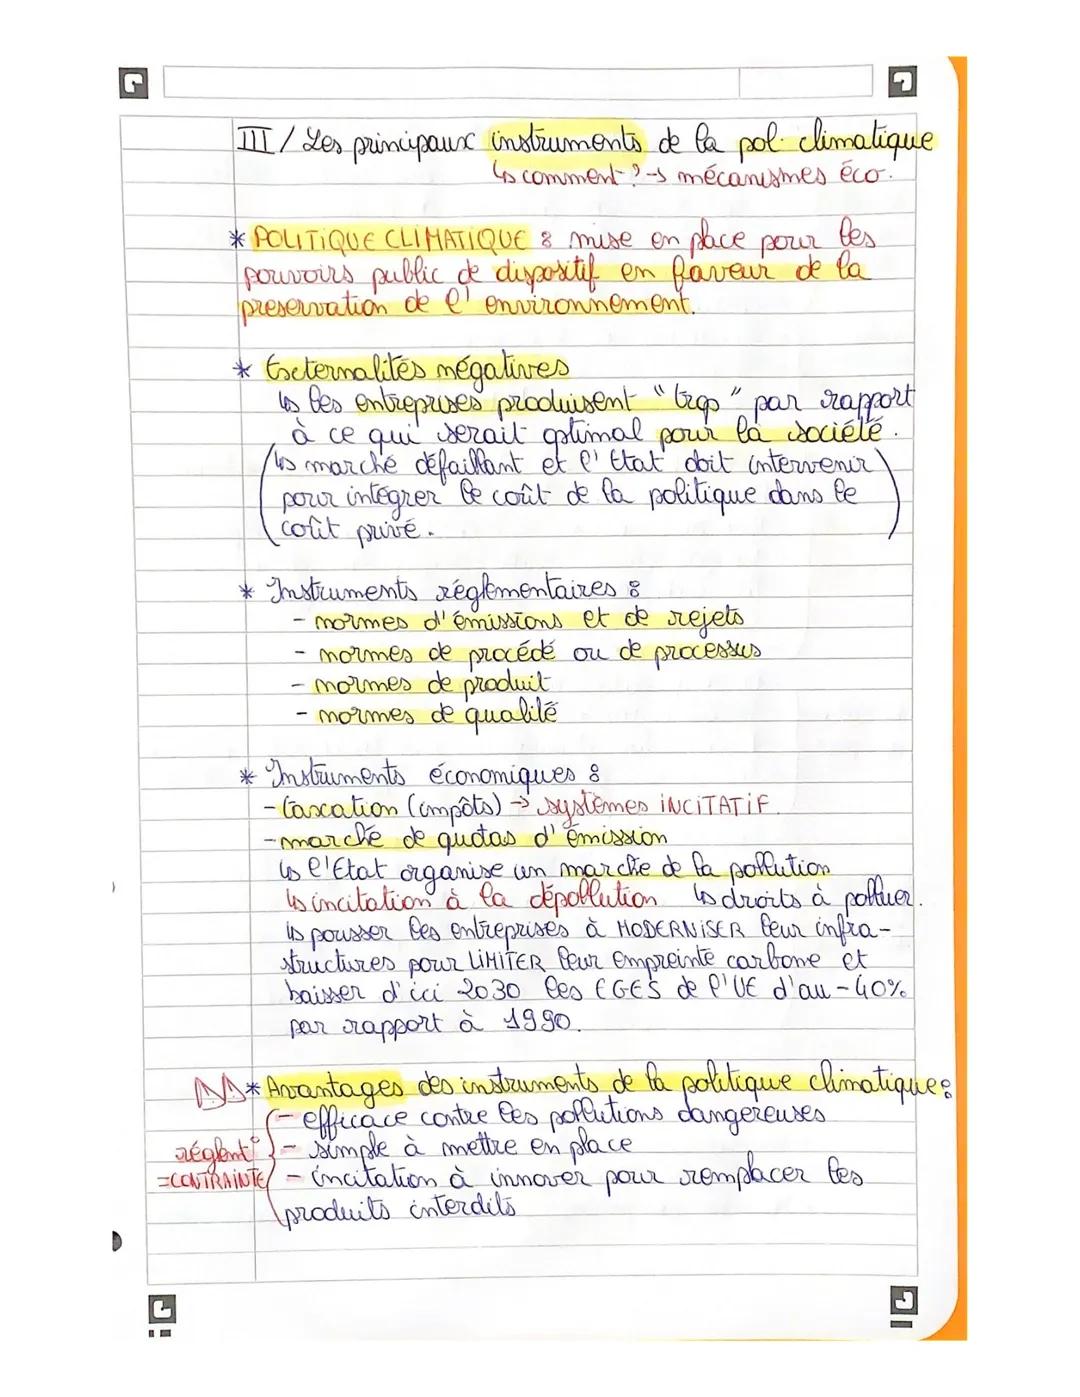 III / Les principaux instruments de la pol. climatique
↳ comment ? → mécanismes éco.
* POLITIQUE CLIMATIQUE : mise en place pour les
pouvoirs public de dispositif en faveur de la
preservation de l' environnement.
* Externalités négatives
↳ les entreprises produisent "trop" par rapport
à ce qui serait optimal pour la société.
(↳ marché défaillant et l'Etat doit intervenir
pour intégrer le coût de la politique dans le
coût privé.)
* Instruments réglementaires :
- normes d'émissions et de rejets
- normes de procédé ou de processus
- normes de produit
- normes de qualité
* Instruments économiques :
- taxation (impôts) → systèmes INCITATIF.
- marché de quotas d'émission
↳ l'Etat organise un marché de la pollution
↳ incitation à la dépollution ↳ droits à polluer.
↳ pousser les entreprises à MODERNISER leur infra-
structures pour LIMITER leur empreinte carbone et
baisser d'ici 2030 les EGES de l'UE d'au - 40%
par rapport à 1990.
* Avantages des instruments de la politique climatique :
- efficace contre les pollutions dangereuses
réglent° - simple à mettre en place
=CONTRAINTE - incitation à innover pour remplacer les
produits interdits